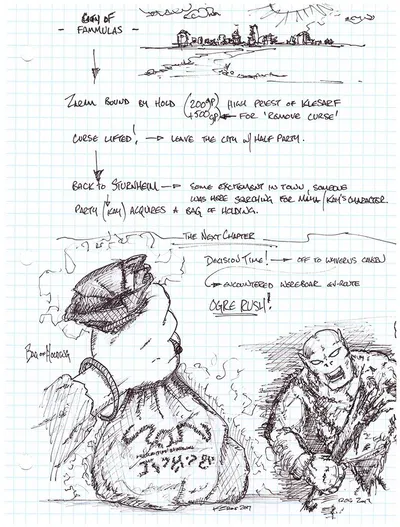 CITY OF
- FAMMULAS -
ZAREM BOUND BY HOLD (200gp +500gp) HIGH PRIEST OF
FOR 'REMOVE CURSE'
CURSE LIFTED! → LEAVE THE CITY W/ HALF PARTY.
BACK TO STURNHEIM → SOME EXCITEMENT IN TOWN, SOMEONE
WAS HERE SEARCHING FOR / KAY'S CHARACTER
PARTY (KAY) ACQUIRES A BAG OF HOLDING.
THE NEXT CHAPTER
DECISION TIME! → OFF TO CABIN
ENCOUNTERED WEREBOAR EN-ROUTE
OGRE RUSH!
BAG OF HOLDING